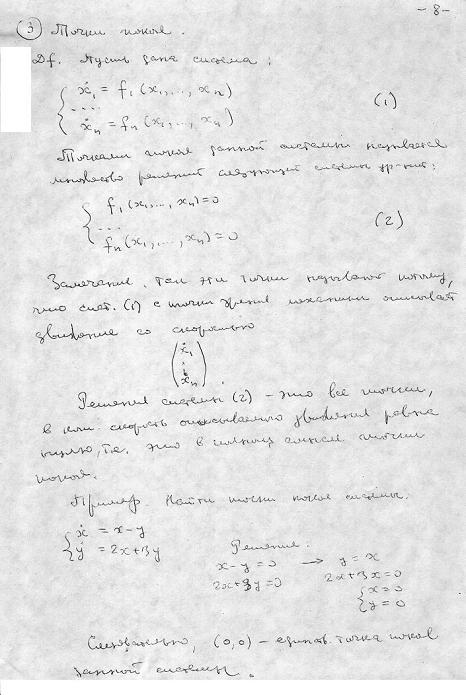 -8-
③ Точки покоя.
Df. Пусть дана система:
{ ẋ₁ = f₁(x₁,..., xₙ)
.... (1)
ẋₙ = fₙ(x₁,..., xₙ)
Точками покоя данной системы называется
множество решений следующей системы ур-ний:
{ f₁(x₁,..., xₙ)=0
... (2)
fₙ(x₁,..., xₙ)=0
Замечание. Так эти точки называют потому,
что сист. (1) с точки зрения механики описывает
движение со скоростью
(ẋ₁
.
ẋₙ).
Решения системы (2) - это все точки,
в кот. скорость описываемого движения равна
нулю, т.е. это в полном смысле точки
покоя.
Пример. Найти точки покоя системы.
{ ẋ = x-y
ẏ = 2x+3y
Решение:
x-y=0 → y=x
2x+3y=0 2x+3x=0
{ x=0
y=0
Следовательно, (0,0) - единств. точка покоя
данной системы.